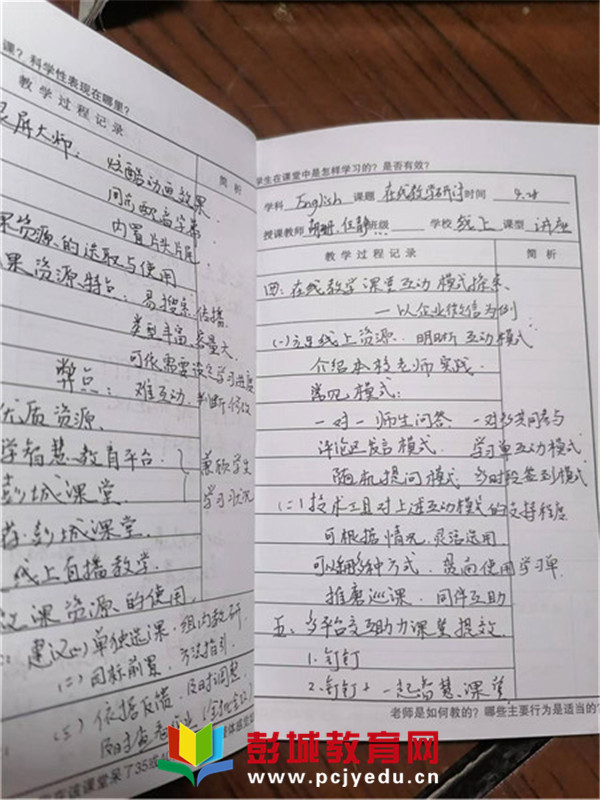 课？科学性表现在哪里？
教学过程记录
简析
屏大师： 炫酷动画效果
同步配音字幕
内置片头片尾
课资源的选取与使用
课资源特点：易搜索 传播
类型丰富 容量大
可依需要设定学习进度
弊点：难互动，判断修改
优质资源
学智慧教育平台
彭城课堂
兼顾学生
学习状况
彭城课堂
线上直播教学
议课资源的使用
建议(一)单独选课，组内教研
(二)目标前置，方法指引
(三)依据反馈，及时调整
学生在课堂中是怎样学习的？是否有效？
学科 English 课题 在线教学研讨 时间 4.28
授课教师 班级 学校 线上 课型 讲座
教学过程记录 简析
四：在线教学课堂互动模式探索
—以企业微信为例
(一)立足线上资源 明晰互动模式
介绍本校老师实践
常见模式：
一对一师生问答 一对多共同参与
评论区发言模式 学习单互动模式
随机提问模式 多时段签到模式
(二)技术工具对上述互动模式的支持程度
可根据情况，灵活运用
可以用多种方式， 使用学习单
推磨巡课 同伴互助
五、多平台交互助力课堂提效
1.钉钉
2.钉钉+一起智慧课堂
老师是如何教的？哪些主要行为是适当的？
应该课堂呆了35或
彭城教育网
www.pcjyedu.cn